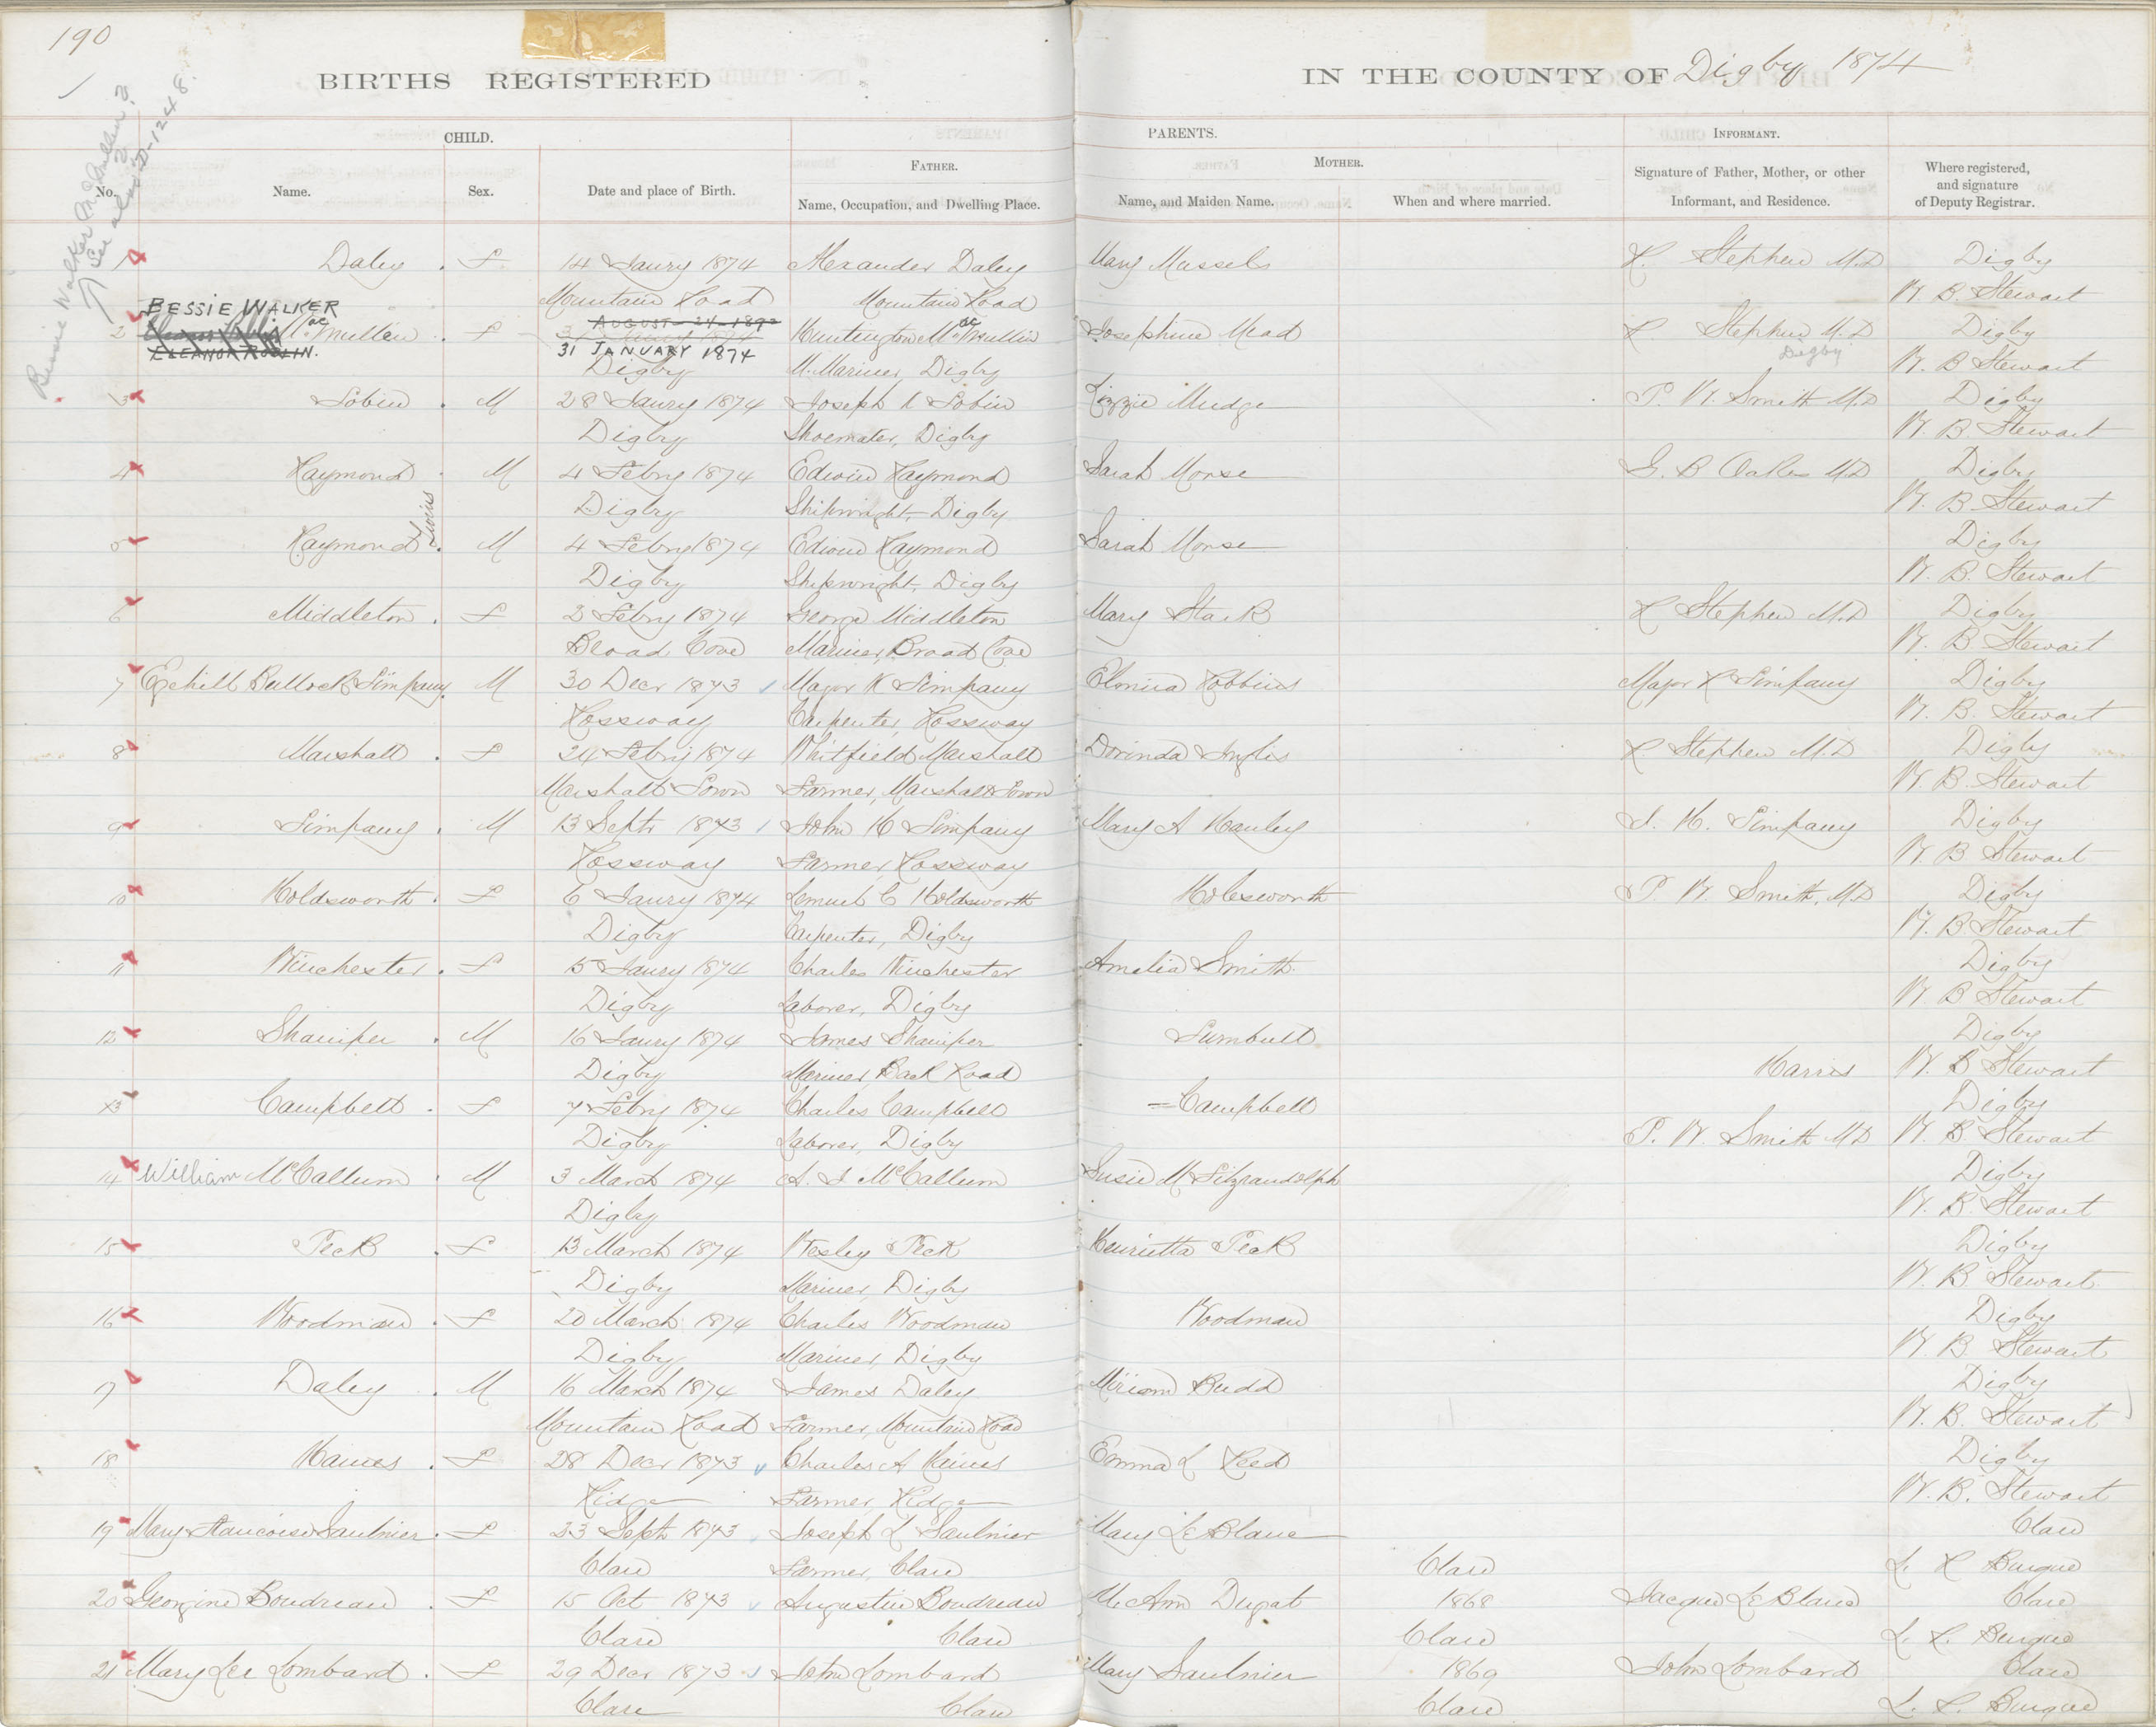 190
BIRTHS REGISTERED IN THE COUNTY OF Digby 1874
Bessie Walker McMullen?
See also D-1248.
CHILD. PARENTS. INFORMANT.
FATHER. MOTHER.
No. Name. Sex. Date and place of Birth. Name, Occupation, and Dwelling Place. Name, and Maiden Name. When and where married. Signature of Father, Mother, or other Informant, and Residence. Where registered, and signature of Deputy Registrar.
1 Daley. F 14 Jaury 1874 Alexander Daley Mary Mussels R. Stephen M.D Digby
Mountain Road Mountain Road W. B. Stewart
BESSIE WALKER AUGUST-24-1892
2 McMullen. F Huntington McMullin Josephine Mead R. Stephen M.D Digby
ELEANOR ROSLIN. 31 JANUARY 1874 Digby
Digby M. Mariner, Digby W. B Stewart
3 Tobin. M 28 Jaury 1874 Joseph R Tobin Lizzie Mudge P. W. Smith M.D Digby
Digby Shoemaker, Digby W. B. Stewart
4 Raymond. M 4 Febry 1874 Edwin Raymond Sarah Morse G. B Oakes M.D Digby
Digby Shipwright, Digby W. B. Stewart
Twins
5 Raymond. M 4 Febry 1874 Edwin Raymond Sarah Morse Digby
Digby Shipwright, Digby W. B. Stewart
6 Middleton. F 2 Febry 1874 George Middleton Mary Stark R Stephen M.D Digby
Broad Cove Mariner, Broad Cove W. B Stewart
7 Bullock Simpany. M 30 Decr 1873 Major R Simpany Elmira Robbins Major R Simpany Digby
Rossway Carpenter, Rossway W. B. Stewart
8 Marshall. F 24 Febry 1874 Whitfield Marshall Dorinda Ingles R Stephen M.D Digby
Marshall Town Farmer, Marshall Town W. B. Stewart
9 Simpany. M 13 Septr 1873 John H Simpany Mary A Hanley J. H. Simpany Digby
Rossway Farmer, Rossway W. B Stewart
10 Holdsworth. F 6 Jaury 1874 Lemuel C Holdsworth Holesworth P. W. Smith, M.D Digby
Digby Carpenter, Digby W. B Stewart
11 Winchester. F 15 Jaury 1874 Charles Winchester Amelia Smith Digby
Digby Laborer, Digby W B Stewart
12 Shaniper. M 16 Jaury 1874 James Shaniper Turnbull Digby
Digby Mariner, Back Road Harris W. B Stewart
13 Campbell. F 7 Febry 1874 Charles Campbell Campbell Digby
Digby Laborer, Digby P. W. Smith M D W. B. Stewart
14 William McCallum. M 3 March 1874 A. J McCallum Susie M Fitzrandolph Digby
Digby W. B. Stewart
15 Peck. F 13 March 1874 Wesley Peck Henrietta Peck Digby
Digby Mariner, Digby W. B Stewart
16 Woodman. F 20 March 1874 Charles Woodman Woodman Digby
Digby Mariner, Digby W. B Stewart
17 Daley. M 16 March 1874 James Daley Miriam Budd Digby
Mountain Road Farmer, Mountain Road W. B. Stewart
18 Haines. F 28 Decr 1873 Charles A Haines Emma L Reed Digby
Ridge Farmer, Ridge W. B. Stewart
19 Mary Francoise Saulnier. F 23 Septr 1873 Joseph L Saulnier Mary Le Blanc Clare
Clare Farmer, Clare Clare
20 Georgine Boudreau. F 15 Oct 1873 Augustin Boudreau M. Ann Dugat 1868 Jacque Le Blanc Clare
Clare Clare Clare
21 Mary Lee Lombard. F 29 Decr 1873 John Lombard Mary Saulnier 1869 John Lombard Clare
Clare Clare Clare